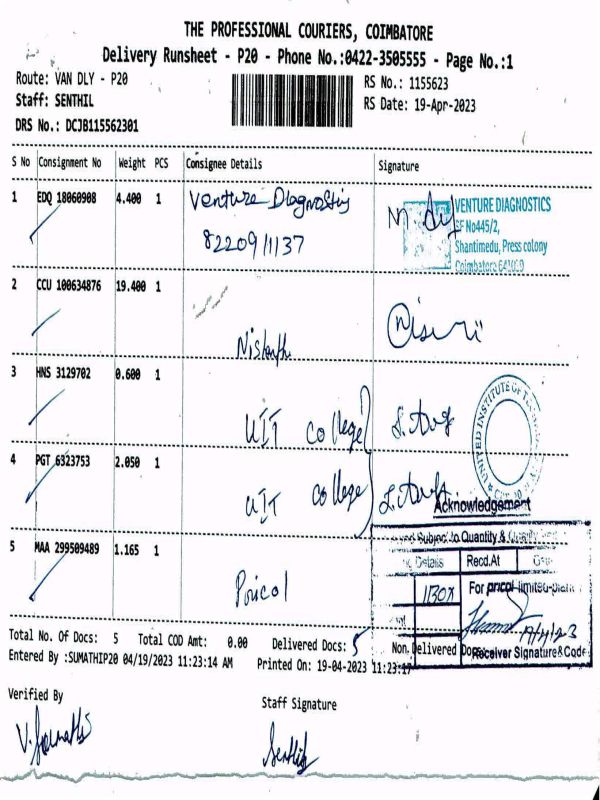 THE PROFESSIONAL COURIERS, COIMBATORE
Delivery Runsheet - P20 - Phone No.:0422-3505555 - Page No.:1
Route: VAN DLY - P20
RS No.: 1155623
Staff: SENTHIL
RS Date: 19-Apr-2023
DRS No.: DCJB115562301
S No Consignment No Weight PCS Consignee Details Signature
1 EDQ 18060908 4.400 1 Venture Diagnostis
8220911137
VENTURE DIAGNOSTICS
SF No445/2,
Shantimedu, Press colony
Coimbatore
2 CCU 100634876 19.400 1
Nishanth
3 HNS 3129702 0.600 1
UIT College
UNITED INSTITUTE OF
4 PGT 6323753 2.050 1
UIT College
Acknowledgement
Subject to Quantity &
Details Recd.At
5 MAA 299509489 1.165 1
Pricol
1 BOX
For pricol limited-plant
19/4/23
Receiver Signature & Code
Total No. Of Docs: 5 Total COD Amt: 0.00 Delivered Docs: 5 Non Delivered Docs:
Entered By :SUMATHIP20 04/19/2023 11:23:14 AM Printed On: 19-04-2023 11:23:17
Verified By
Staff Signature
V. Sumathi
Senthil